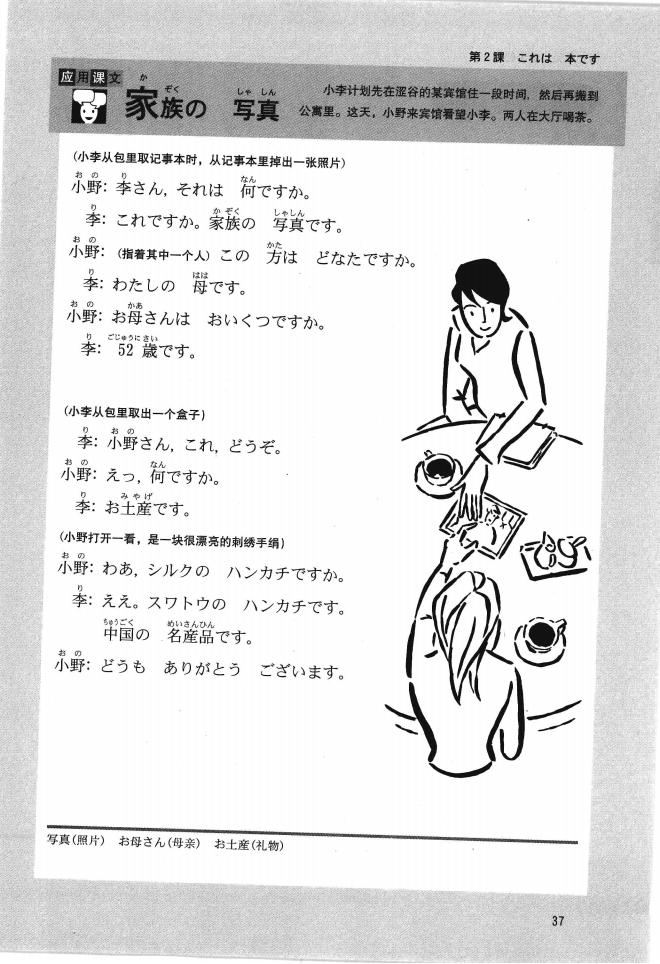 第2課 これは 本です
应用课文
家族の 写真
小李计划先在涩谷的某宾馆住一段时间，然后再搬到
公寓里。这天，小野来宾馆看望小李。两人在大厅喝茶。
(小李从包里取记事本时，从记事本里掉出一张照片)
小野: 李さん, それは 何ですか。
李: これですか。家族の 写真です。
小野: (指着其中一个人) この 方は どなたですか。
李: わたしの 母です。
小野: お母さんは おいくつですか。
李: 52 歳です。
(小李从包里取出一个盒子)
李: 小野さん, これ, どうぞ。
小野: えっ, 何ですか。
李: お土産です。
(小野打开一看，是一块很漂亮的刺绣手绢)
小野: わあ, シルクの ハンカチですか。
李: ええ。スワトウの ハンカチです。
中国の 名産品です。
小野: どうも ありがとう ございます。
写真(照片) お母さん(母亲) お土産(礼物)
37